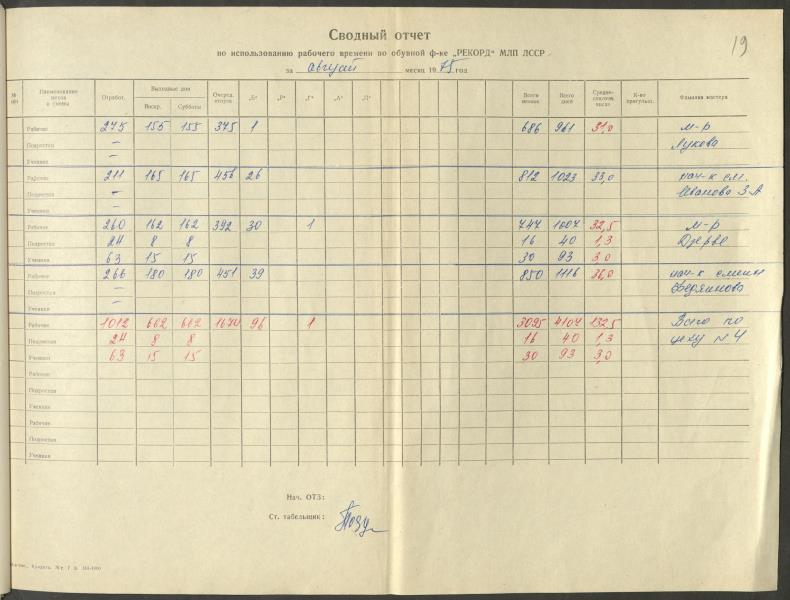 19
Сводный отчет
по использованию рабочего времени по обувной ф-ке „РЕКОРД“ МЛП ЛССР
за август месяц 1975 год
№ Наименование цехов и смены Отработ. Выходные дни Воскр. Субботы Очеред. отпуск „Б“ „Р“ „Г“ „А“ „П“ Всего неявок Всего дней Средне-списочн. число К-во прогульщ. Фамилия мастера
Рабочие 275 155 155 375 1 686 961 31,0 м-р
Подростки — Лукова
Ученики —
Рабочие 211 165 165 456 26 812 1023 33,0 нач-к см.
Подростки — Иванова З.А
Ученики —
Рабочие 260 162 162 392 30 1 747 1007 32,5 м-р
Подростки 24 8 8 16 40 1,3 Дзерве
Ученики 63 15 15 30 93 3,0
Рабочие 266 180 180 451 39 850 1116 36,0 нач-к смены
Подростки —
Ученики —
Рабочие 1012 662 662 1674 96 1 3095 4107 132,5 Всего по
Подростки 24 8 8 16 40 1,3 цеху № 4
Ученики 63 15 15 30 93 3,0
Рабочие
Подростки
Ученики
Рабочие
Подростки
Ученики
Нач. ОТЗ:
Ст. табельщик: